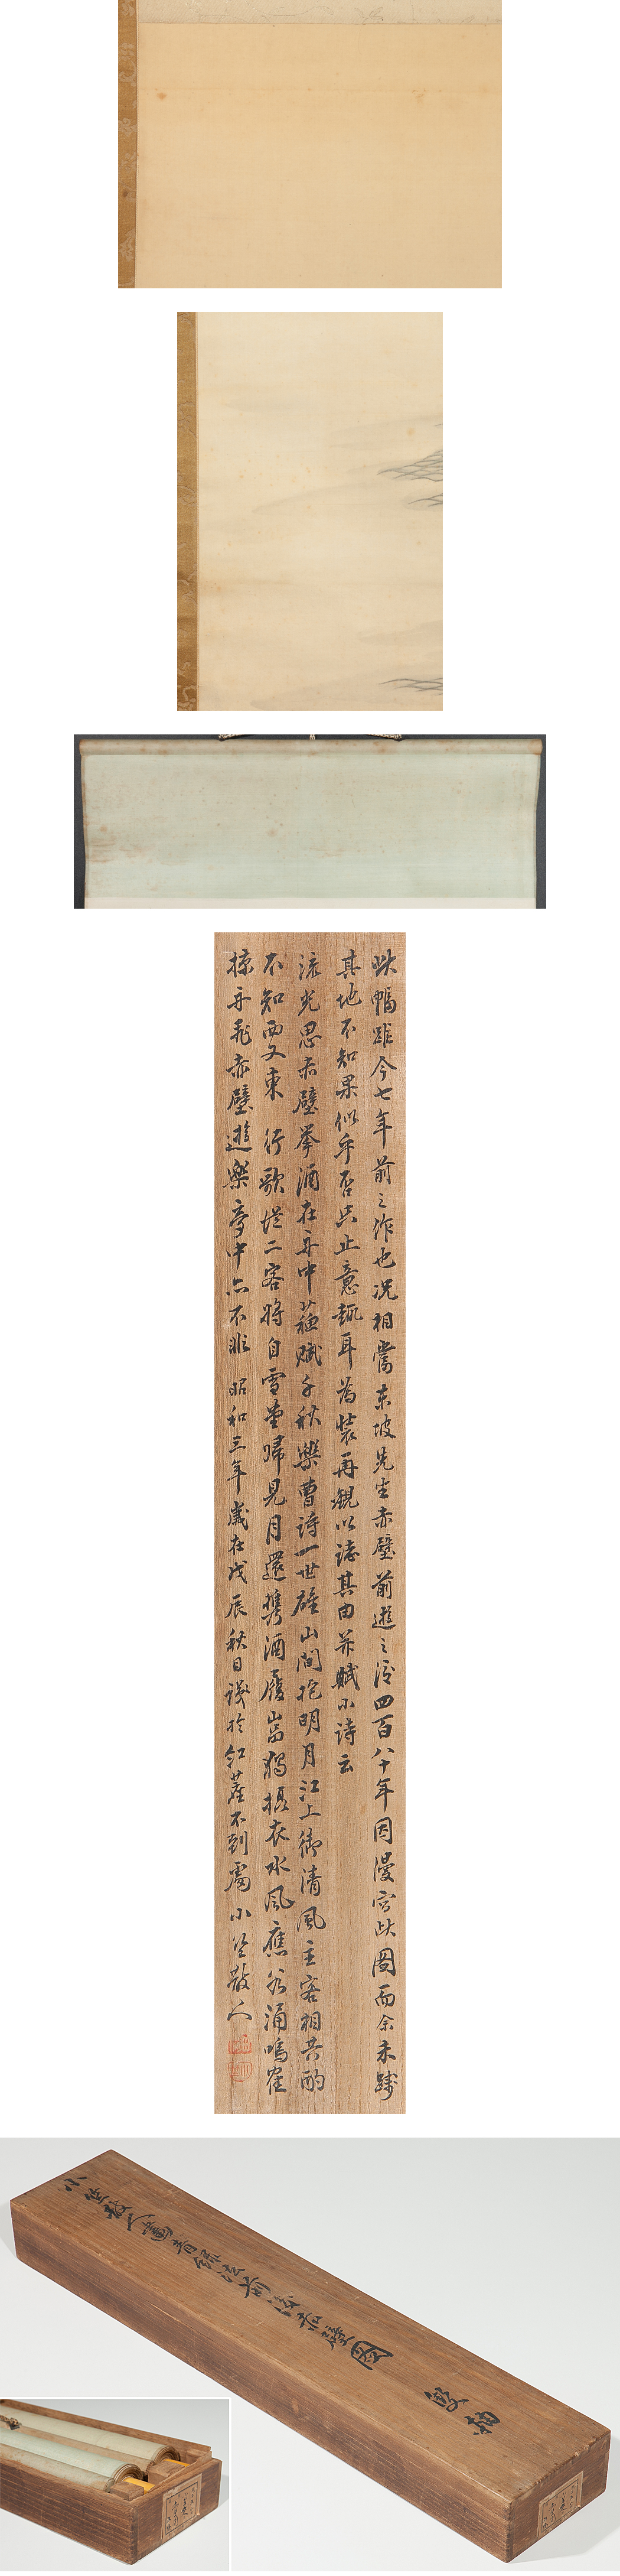 此幅距今七年前之作也況相當東坡先生赤壁前遊之后四百八十年因漫寫此圖而余未踐
其地不知果似乎否只止意趣耳為裝再観以誌其由并賦小詩云
流光思赤壁挙酒在舟中蘇賦千秋樂曹詩一世雄山間抱明月江上御清風主客相共酌
不知西又東 行歌従二客将自雪堂帰見月還携酒履崗獨摂衣水風応谷涌鳴雀
掠舟飛赤壁遊樂夢中亦不非 昭和三年歳在戊辰秋日識於紅塵不到處小笠散人
小笠散人画青緑法前後赤壁圖 雙軸